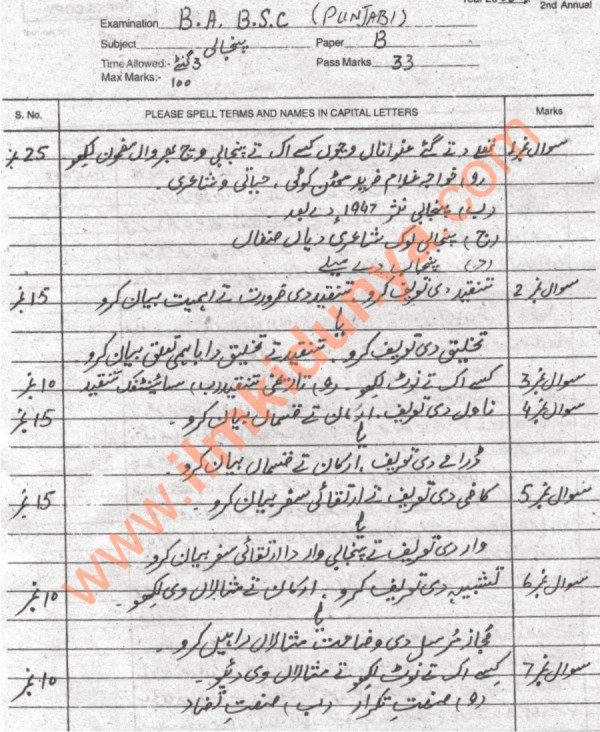 2nd Annual
Examination B.A. B.S.C (PUNJABI)
Subject پنجابی Paper B
Time Allowed:- 3 گھنٹے Pass Marks 33
Max Marks:- 100
S. No. PLEASE SPELL TERMS AND NAMES IN CAPITAL LETTERS Marks
سوال نمبر 1 تھلے دتے گئے عنواناں وچوں کسے اک تے پنجابی وچ بھروال مضمون لکھو 25 نمبر
(و) خواجہ غلام فرید مٹھن کوٹی، حیاتی و شاعری۔
(ب) پنجابی نثر 1947ء دے بعد۔
(ج) پنجابی لوک شاعری دیاں صنفاں
(د) پنجاب دے میلے
سوال نمبر 2 تنقید دی تعریف کرو۔ تنقید دی ضرورت تے اہمیت بیان کرو 15 نمبر
یا
تخلیق دی تعریف کرو۔ تنقید تے تخلیق دا باہمی تعلق بیان کرو
سوال نمبر 3 کسے اک تے نوٹ لکھو۔ (و) تاریخی تنقید (ب) سائینٹفک تنقید 10 نمبر
سوال نمبر 4 ناول دی تعریف، ارکان تے قسماں بیان کرو۔ 15 نمبر
یا
ڈرامے دی تعریف، ارکان تے قسماں بیان کرو۔
سوال نمبر 5 کافی دی تعریف تے ارتقائی سفر بیان کرو۔ 15 نمبر
یا
وار دی تعریف تے پنجابی وار دا ارتقائی سفر بیان کرو۔
سوال نمبر 6 تشبیہہ دی تعریف کرو، ارکان تے مثالاں وی لکھو۔ 10 نمبر
یا
مجاز مرسل دی وضاحت مثالاں راہیں کرو۔
سوال نمبر 7 کسے اک تے نوٹ لکھو تے مثالاں وی دیو۔ 10 نمبر
(و) صنعت تکرار (ب) صنعت تضاد
www.ilmkidunya.com